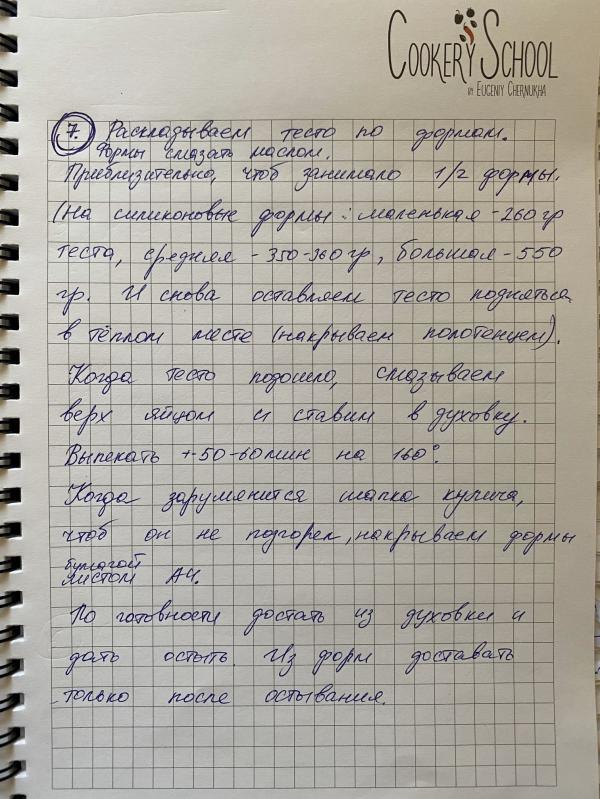 COOKERY SCHOOL
BY EUGENIY CHERNUKHA
7. Раскладываем тесто по формам.
Формы смазать маслом.
Приблизительно, чтоб занимало 1/2 формы.
(На силиконовые формы: маленькая - 260 гр
теста, средняя - 350-360 гр, большая - 550
гр. И снова оставляем тесто подняться
в тёплом месте (накрываем полотенцем).
Когда тесто подошло, смазываем
верх яйцом и ставим в духовку.
Выпекать +-50-60 мин на 160°.
Когда зарумянится шапка кулича,
чтоб он не подгорел, накрываем формы
бумагой
листом А4.
По готовности достать из духовки и
дать остыть. Из форм доставать
только после остывания.